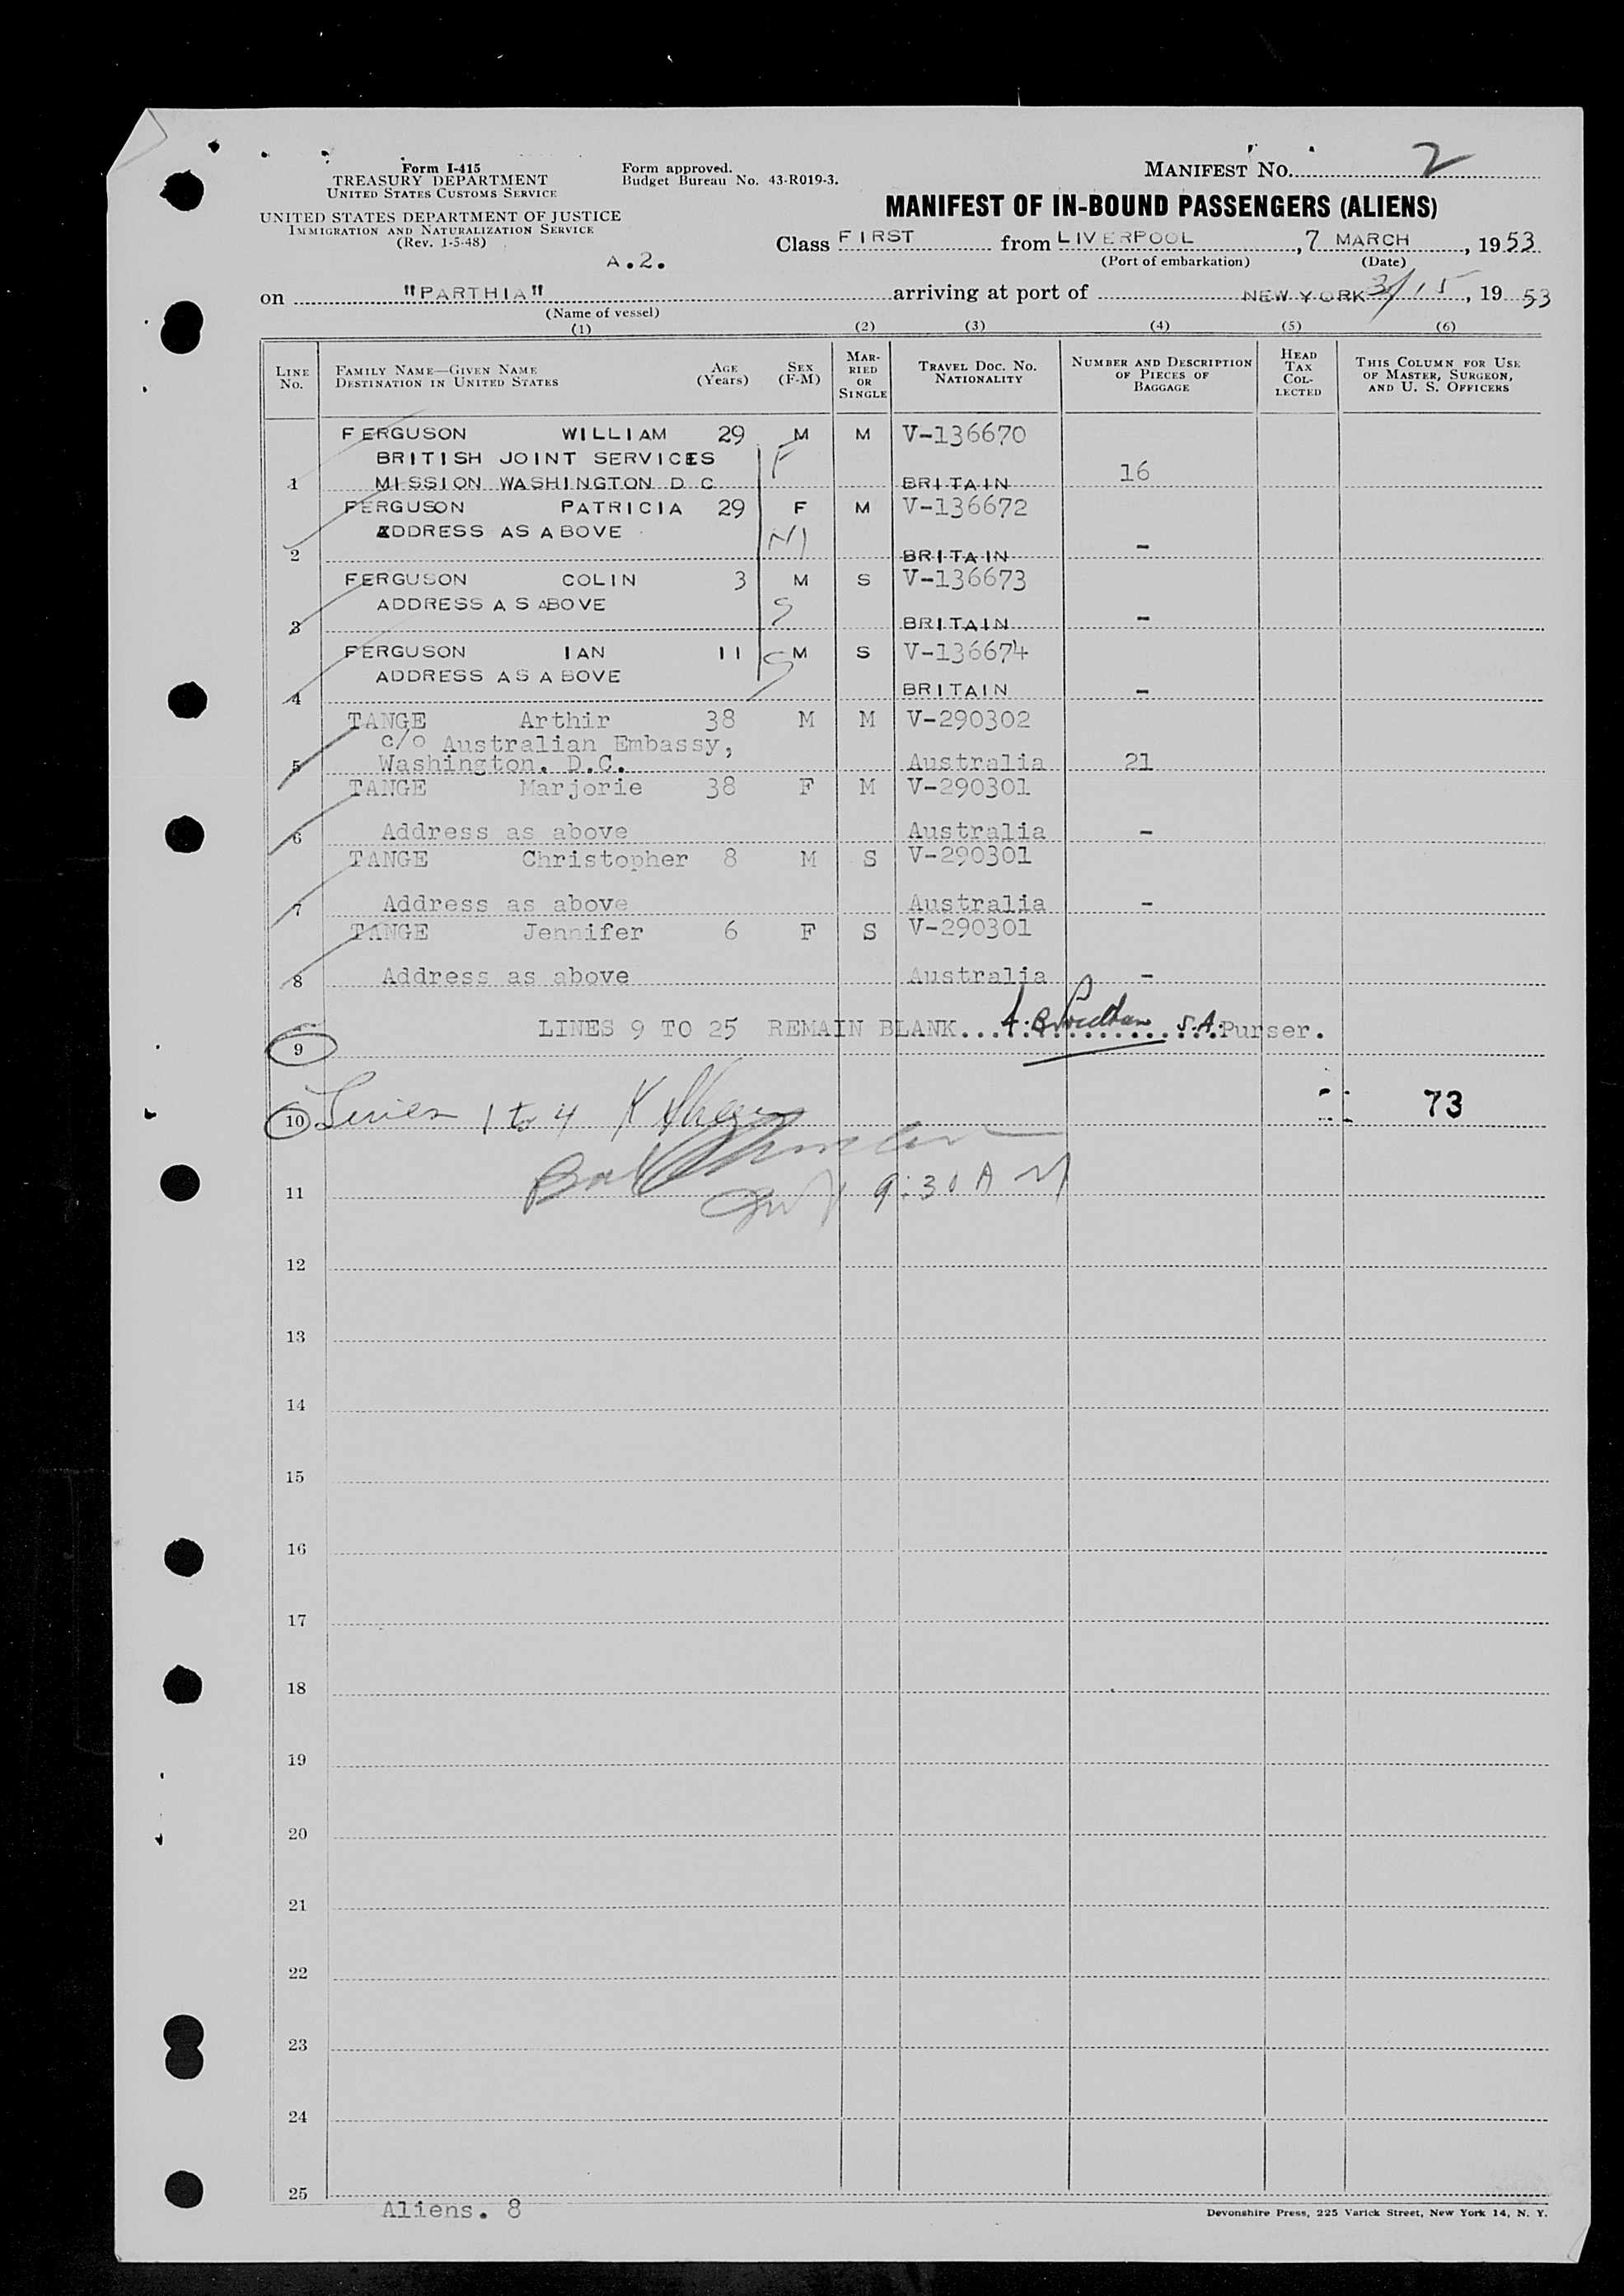 Form I-415
TREASURY DEPARTMENT
UNITED STATES CUSTOMS SERVICE
UNITED STATES DEPARTMENT OF JUSTICE
IMMIGRATION AND NATURALIZATION SERVICE
(Rev. 1-5-48)
Form approved.
Budget Bureau No. 43-R019-3.
A.2.
MANIFEST NO. 2
MANIFEST OF IN-BOUND PASSENGERS (ALIENS)
Class FIRST from LIVERPOOL, 7 MARCH, 1953
(Port of embarkation) (Date)
on "PARTHIA" arriving at port of NEW YORK 3/15, 1953
(Name of vessel)
(1) (2) (3) (4) (5) (6)
LINE NO. FAMILY NAME—GIVEN NAME DESTINATION IN UNITED STATES AGE (Years) SEX (F-M) MARRIED OR SINGLE TRAVEL DOC. NO. NATIONALITY NUMBER AND DESCRIPTION OF PIECES OF BAGGAGE HEAD TAX COLLECTED THIS COLUMN FOR USE OF MASTER, SURGEON, AND U. S. OFFICERS
FERGUSON WILLIAM 29 M M V-136670
BRITISH JOINT SERVICES F
1 MISSION WASHINGTON D C BRITAIN 16
FERGUSON PATRICIA 29 F M V-136672
ADDRESS AS ABOVE
2 BRITAIN -
FERGUSON COLIN 3 M S V-136673
ADDRESS AS ABOVE S
3 BRITAIN -
FERGUSON IAN 11 M S V-136674
ADDRESS AS ABOVE S
4 BRITAIN -
TANGE Arthir 38 M M V-290302
c/o Australian Embassy,
5 Washington. D.C. Australia 21
TANGE Marjorie 38 F M V-290301
6 Address as above Australia -
TANGE Christopher 8 M S V-290301
7 Address as above Australia -
TANGE Jennifer 6 F S V-290301
8 Address as above Australia -
LINES 9 TO 25 REMAIN BLANK... S.A. Purser.
9
10 Lines 1 to 4 73
9:30 AM
11
12
13
14
15
16
17
18
19
20
21
22
23
24
25
Aliens. 8
Devonshire Press, 225 Varick Street, New York 14, N. Y.